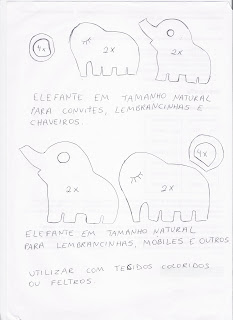 4x
2x
2x
ELEFANTE EM TAMANHO NATURAL
PARA CONVITES, LEMBRANCINHAS E
CHAVEIROS.
4x
2x
2x
ELEFANTE EM TAMANHO NATURAL
PARA LEMBRANCINHAS, MOBILES E OUTROS
UTILIZAR COM TECIDOS COLORIDOS
OU FELTROS.